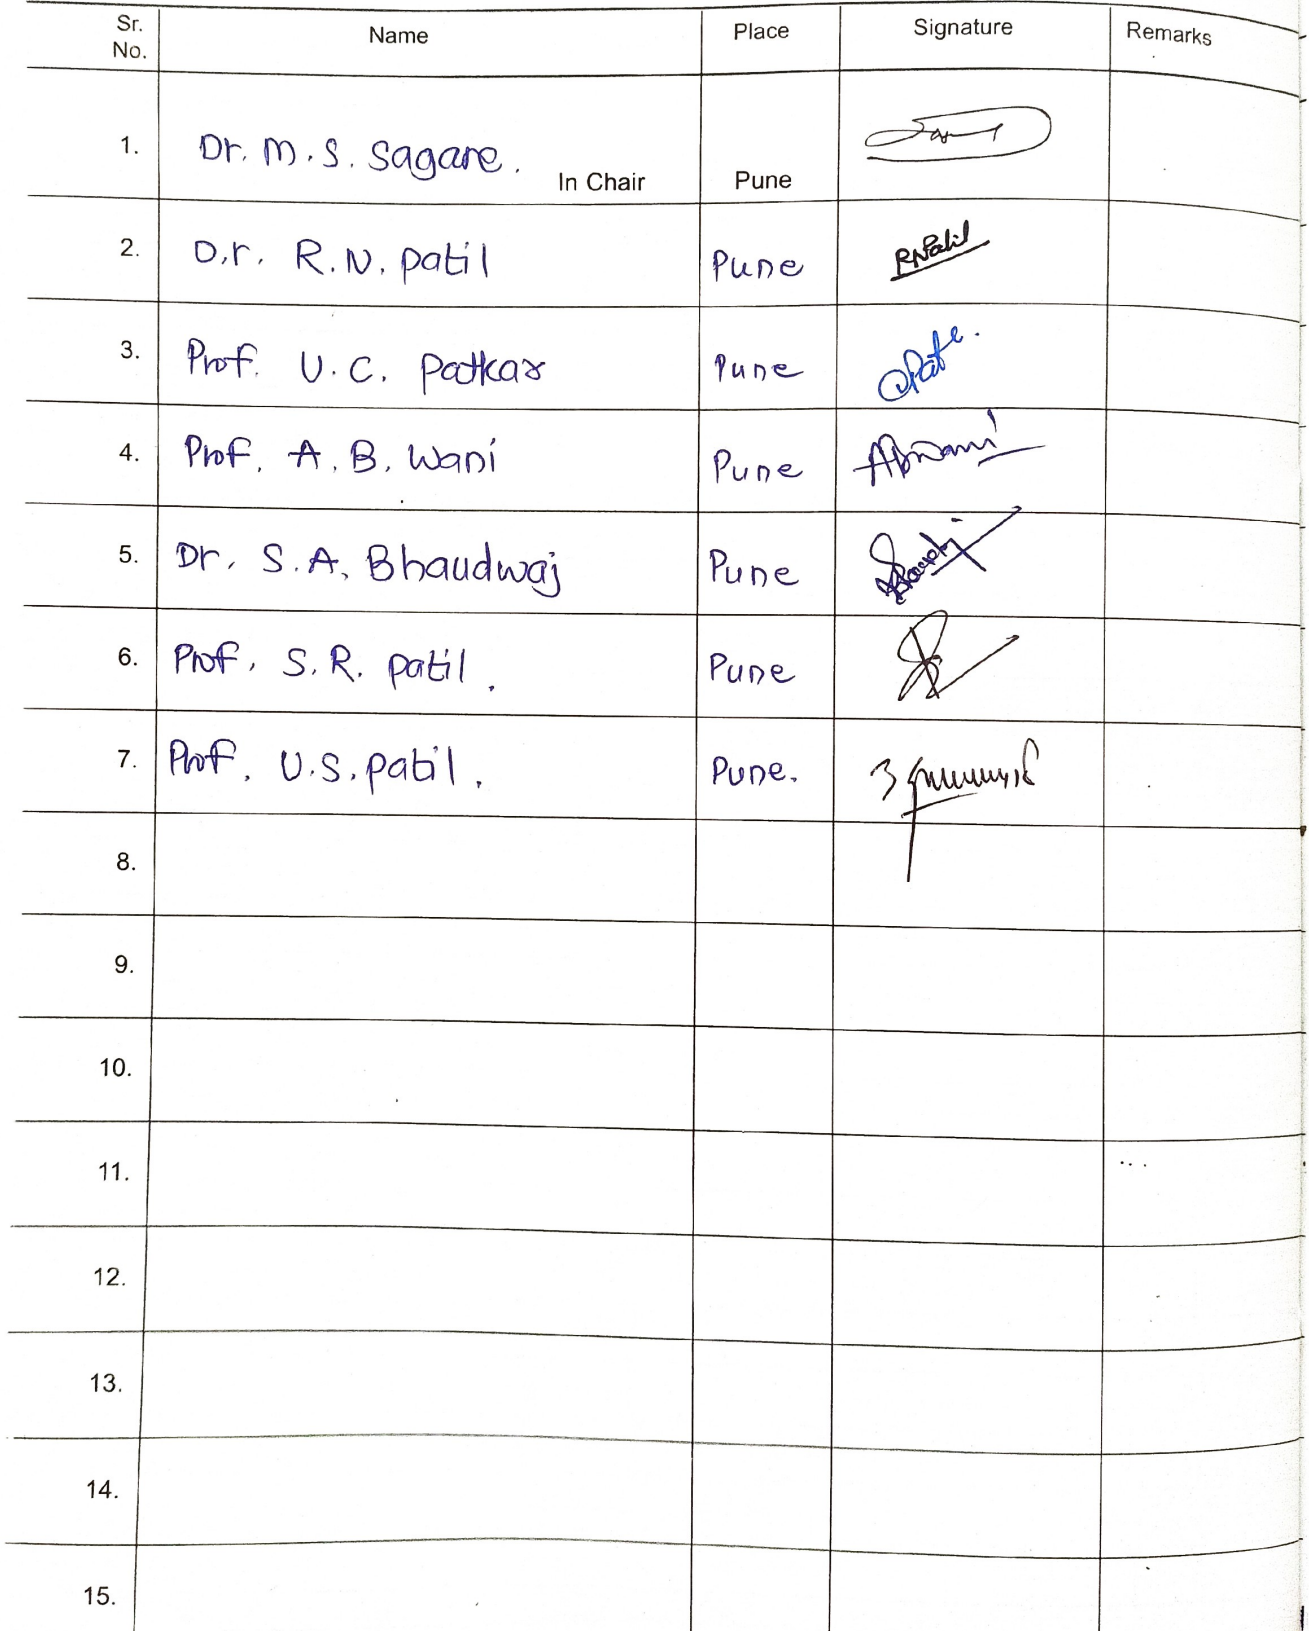 Sr. No. Name Place Signature Remarks
1. Dr. M. S. Sagare. In Chair Pune
2. D.r. R.N. patil Pune RNPatil
3. Prof. U.C. Patkar Pune
4. Prof. A.B. Wani Pune ABWani
5. Dr. S.A. Bhaudwaj Pune
6. Prof. S.R. patil. Pune
7. Prof. U.S. patil. Pune.
8.
9.
10.
11.
12.
13.
14.
15.